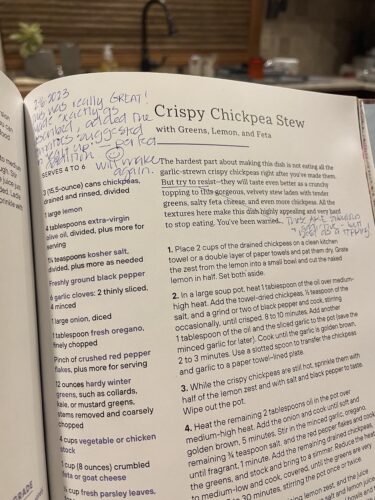 2-6-2023
was really GREAT!
made exactly as
added the
suggested
perfect
addition
will make
again.
Crispy Chickpea Stew
with Greens, Lemon, and Feta
SERVES 4 TO 6
The hardest part about making this dish is not eating all the
garlic-strewn crispy chickpeas right after you've made them.
But try to resist—they will taste even better as a crunchy
topping to this gorgeous, velvety stew laden with tender
greens, salty feta cheese, and even more chickpeas. All the
textures here make this dish highly appealing and very hard
to stop eating. You've been warned.
3 (15.5-ounce) cans chickpeas,
drained and rinsed, divided
1 large lemon
4 tablespoons extra-virgin
olive oil, divided, plus more for
serving
teaspoons kosher salt,
divided, plus more as needed
Freshly ground black pepper
6 garlic cloves: 2 thinly sliced,
4 minced
1 large onion, diced
1 tablespoon fresh oregano,
finely chopped
Pinch of crushed red pepper
flakes, plus more for serving
12 ounces hardy winter
greens, such as collards,
kale, or mustard greens,
stems removed and coarsely
chopped
4 cups vegetable or chicken
stock
1 cup (8 ounces) crumbled
feta or goat cheese
cup fresh parsley leaves,
1. Place 2 cups of the drained chickpeas on a clean kitchen
towel or a double layer of paper towels and pat them dry. Grate
the zest from the lemon into a small bowl and cut the naked
lemon in half. Set both aside.
2. In a large soup pot, heat 1 tablespoon of the oil over medium-
high heat. Add the towel-dried chickpeas, ½ teaspoon of the
salt, and a grind or two of black pepper and cook, stirring
occasionally, until crisped, 8 to 10 minutes. Add another
1 tablespoon of the oil and the sliced garlic to the pot (save the
minced garlic for later). Cook until the garlic is golden brown,
2 to 3 minutes. Use a slotted spoon to transfer the chickpeas
and garlic to a paper towel–lined plate.
3. While the crispy chickpeas are still hot, sprinkle them with
half of the lemon zest and with salt and black pepper to taste.
Wipe out the pot.
4. Heat the remaining 2 tablespoons oil in the pot over
medium-high heat. Add the onion and cook until soft and
golden brown, 5 minutes. Stir in the minced garlic, oregano,
remaining ¾ teaspoon salt, and the red pepper flakes and cook
until fragrant, 1 minute. Add the remaining drained chickpeas,
the greens, and stock and bring to a simmer. Reduce the heat
to medium-low and cook, covered, until the greens are very
to 30 minutes, stirring the pot once or twice
lemon zest, and the juice